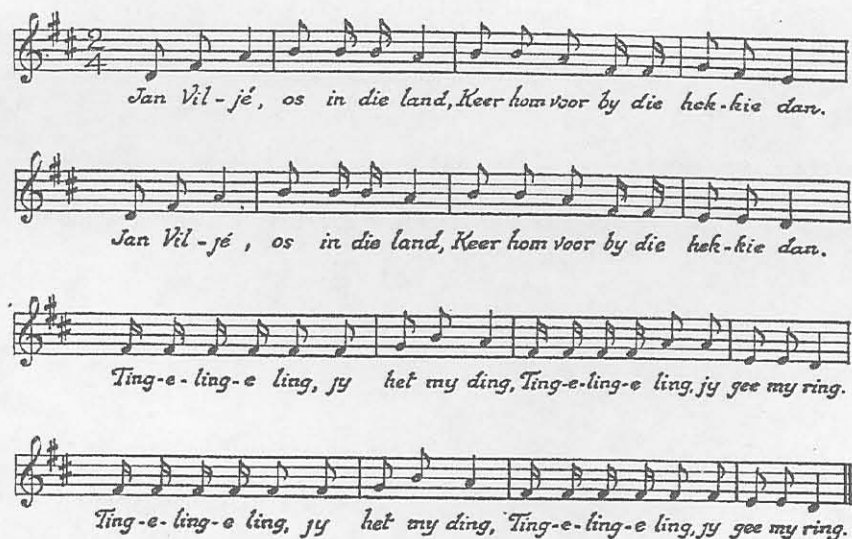 2
4
Jan Vil-jé, os in die land, Keer hom voor by die hek-kie dan.
Jan Vil-jé, os in die land, Keer hom voor by die hek-kie dan.
Ting-e-ling-e ling, jy het my ding, Ting-e-ling-e ling, jy gee my ring.
Ting-e-ling-e ling, jy het my ding, Ting-e-ling-e ling, jy gee my ring.